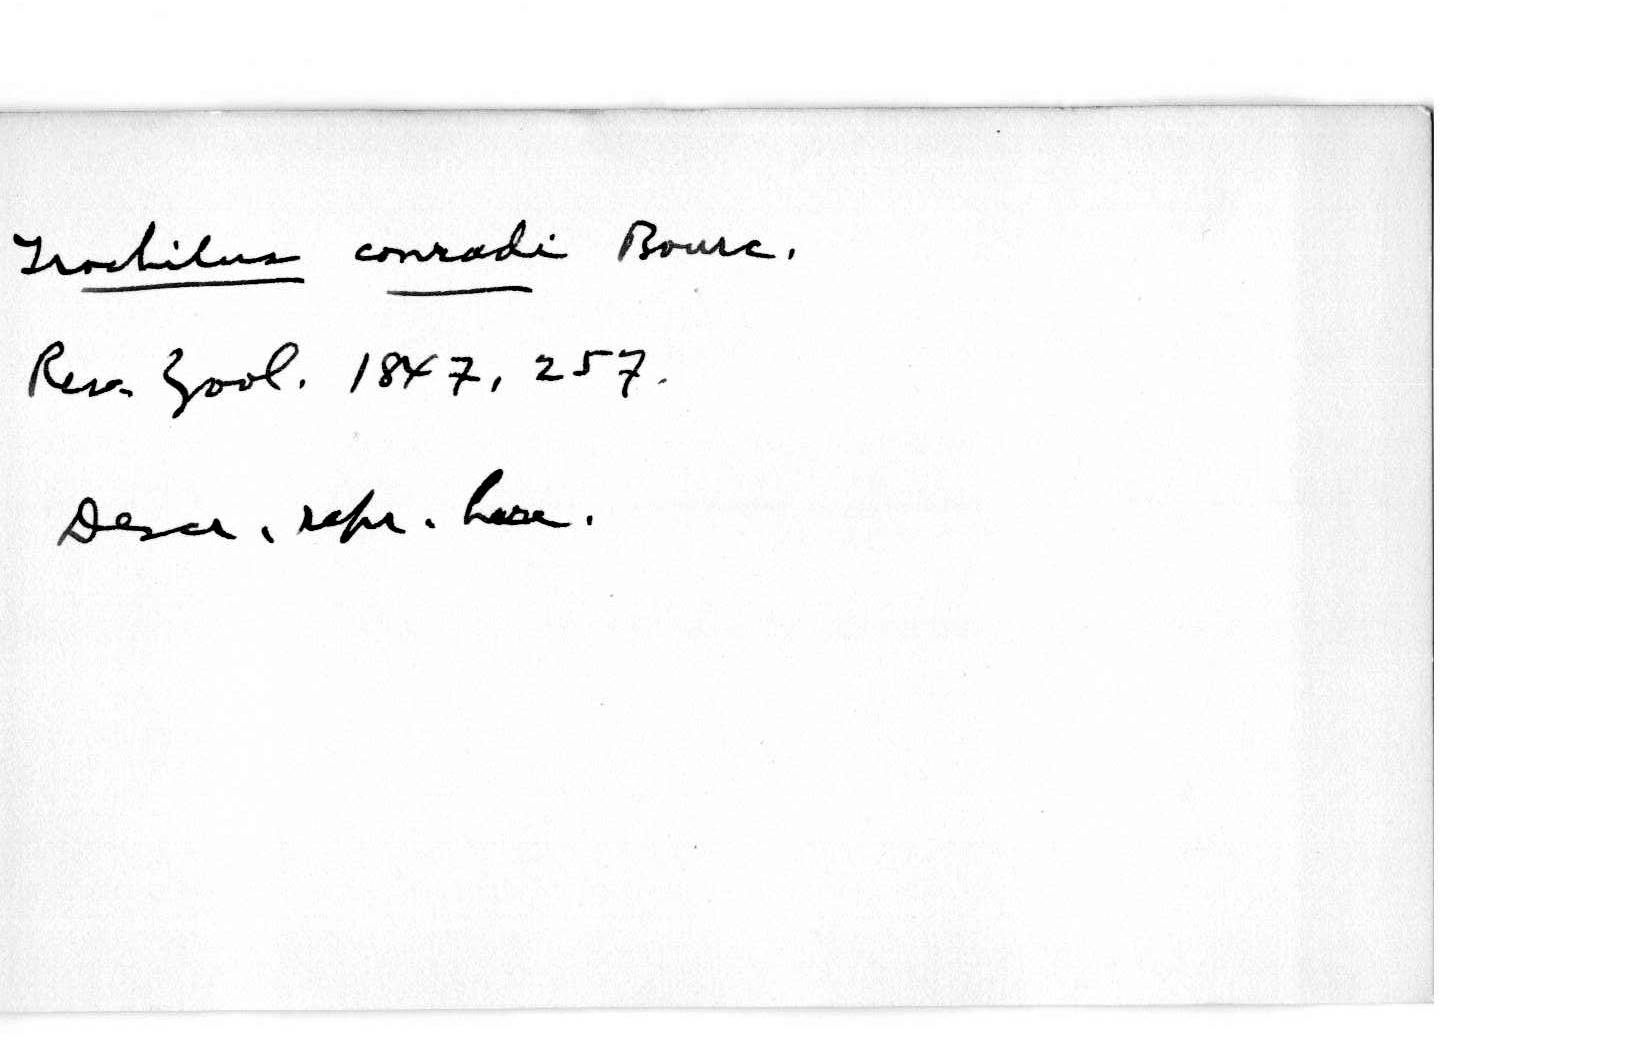 Trochilus conradi Bourc.
Rev. Zool. 1847, 257.
Descr. repr. here.